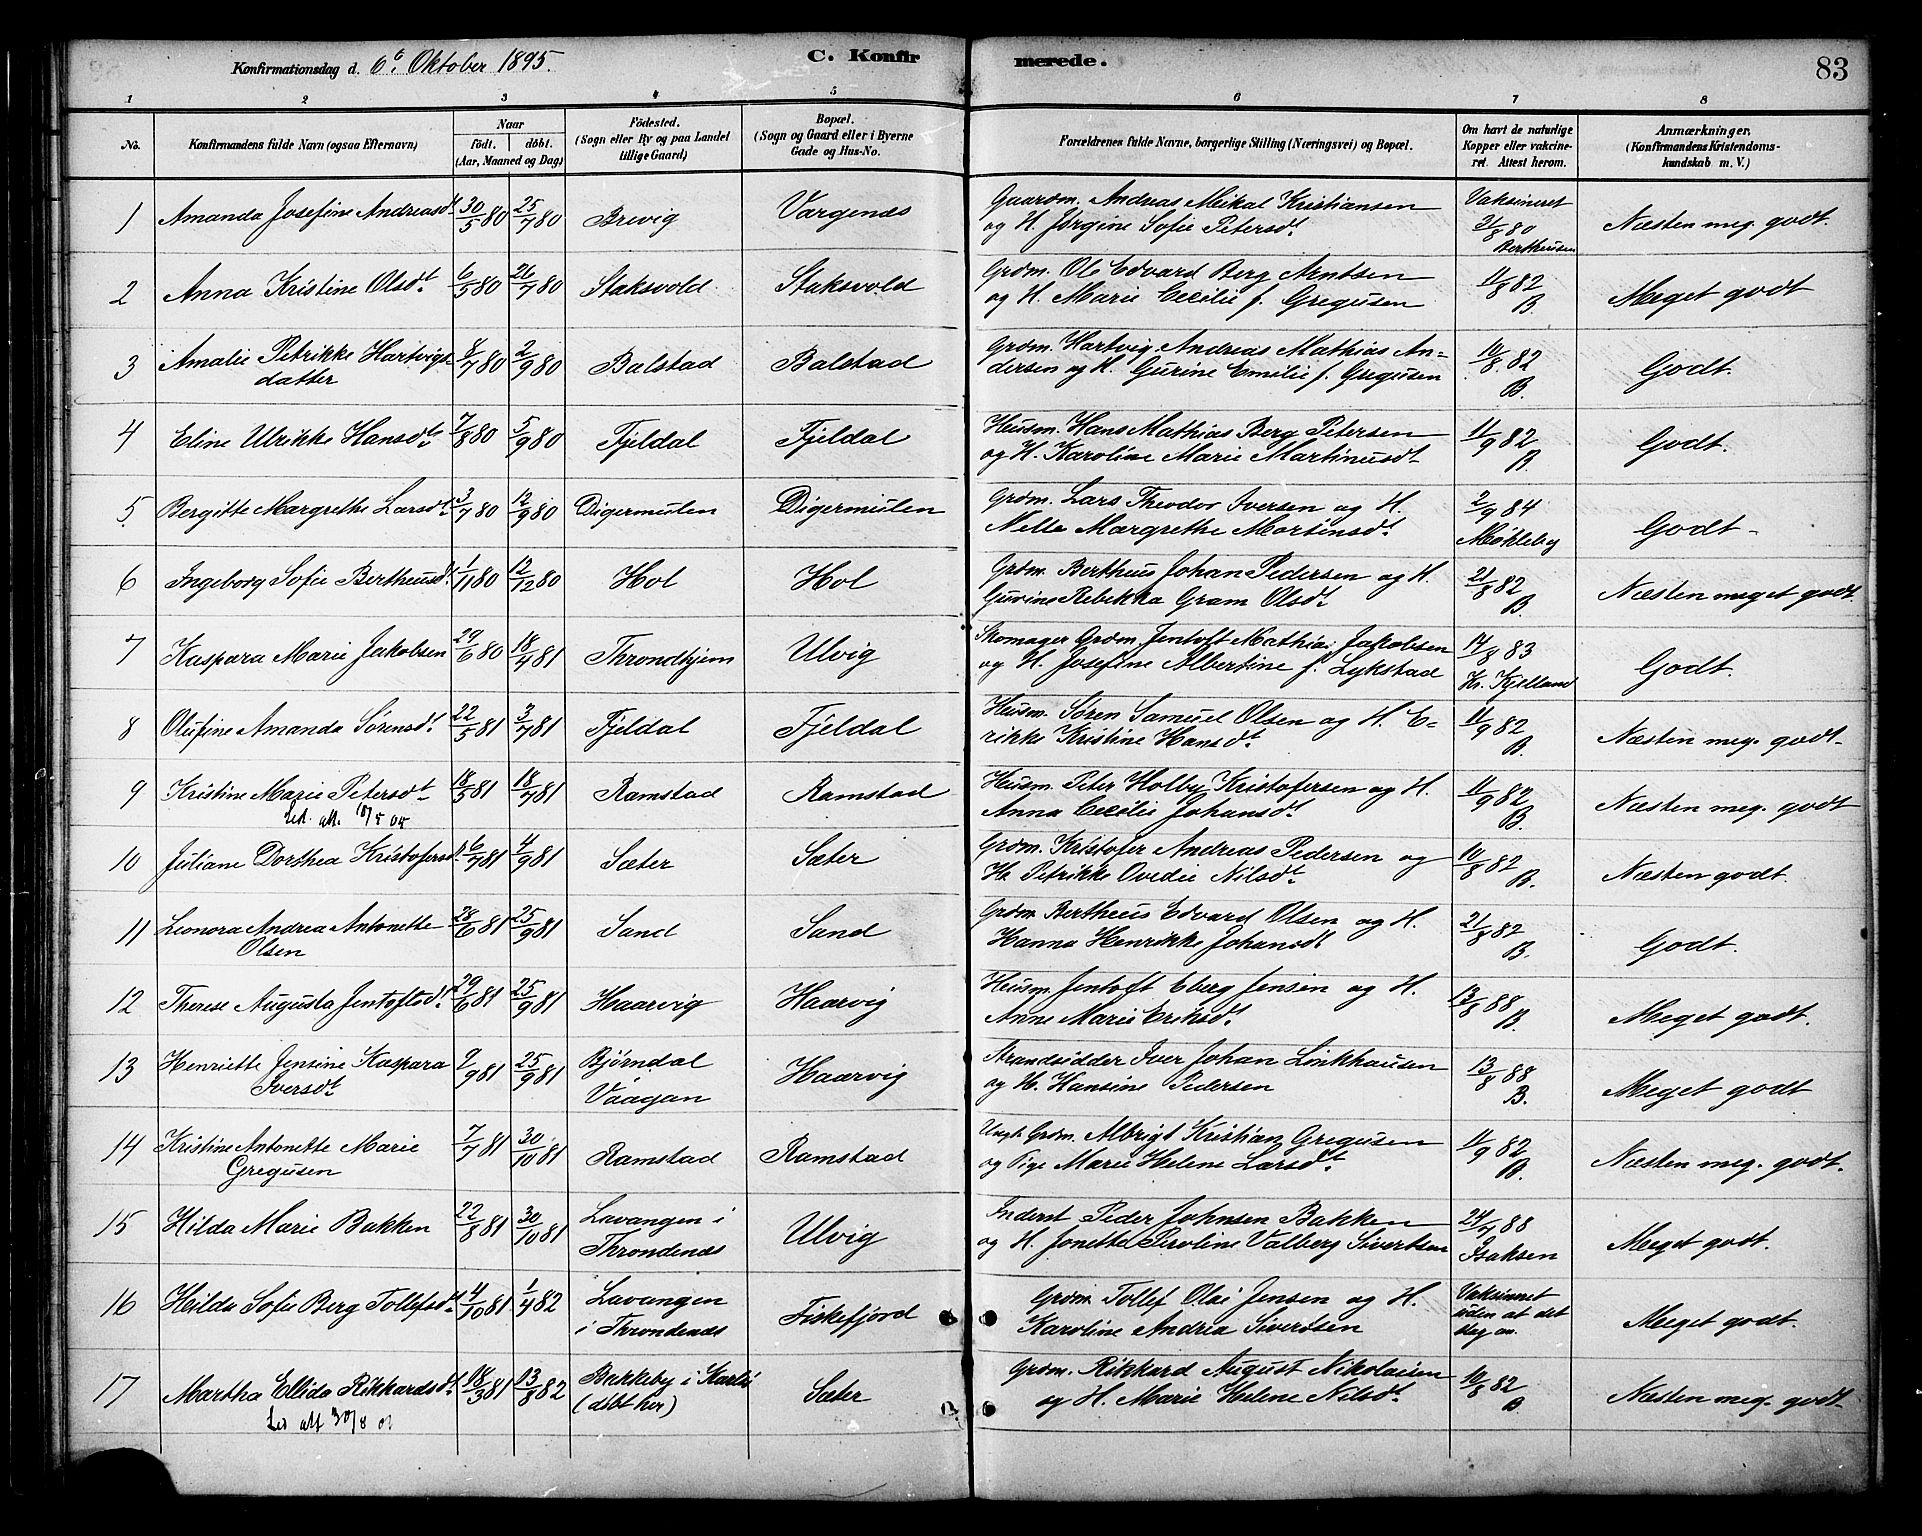 Konfirmationsdag d. 6te Oktober 1895.
C. Konfirmerede.
83
1 2 3 4 5 6 7 8
No.
Konfirmandens fulde Navn (ogsaa Efternavn)
Naar
födt. döbt.
(Aar, Maaned og Dag)
Födested.
(Sogn eller By og paa Landet
tillige Gaard)
Bopæl.
(Sogn og Gaard eller i Byerne
Gade og Hus-No.
Forældrenes fulde Navne, borgerlige Stilling (Næringsvei) og Bopæl.
Om havt de naturlige
Kopper eller vakcine-
ret. Attest herom.
Anmærkninger.
(Konfirmandens Kristendoms-
kundskab m. V.)
1 Amanda Josefine Andreasdt. 30/5 80 25/7 80 Brevig Vargenæs Gaardm. Andreas Meikal Kristiansen Vaksineret
og H. Jørgine Sofie Petersdt. 21/8 80 Næsten meg. godt.
Bertheusen
2 Anna Kristine Olsdt. 6/5 80 26/7 80 Staksvold Staksvold Grdm. Ole Edvard Berg Arntsen 11/8 82
og H. Marie Cecilie f. Gregusen B. Meget godt
3 Amalie Petrikke Hartvigs 8/7 80 2/9 80 Balstad Balstad Grdm. Hartvig Andreas Mathias An- 10/8 82
datter dersen og H. Gurine Emilie f. Gregusen B. Godt.
4 Eline Ulrikke Hansdt. 7/8 80 5/9 80 Fjeldal Fjeldal Husm. Hans Mathias Berg Petersen 11/9 82
og H. Karoline Marie Martinusdt B. Godt.
5 Bergitte Margrethe Larsdt. 3/7 80 12/9 80 Digermulen Digermulen Grdm. Lars Theodor Iversen og H. 2/9 84
Nelle Margrethe Mortensdt. Møkleby Godt-
6 Ingeborg Sofie Bertheusdt. 1/11 80 12/12 80 Hol Hol Grdm. Bertheus Johan Pedersen og H. 21/8 82
Gurine Rebekka Gram Olsdt. B. Næsten meget godt.
7 Kaspara Marie Jakobsen 29/6 80 18/4 81 Throndhjem Ulvig Skomager Grdm. Jentoft Mathias Jakobsen 14/8 83
og H. Josefine Albertine f. Lykstad Kr. Kjelland Godt.
8 Olufine Amanda Sörensdt. 22/5 81 3/7 81 Fjeldal Fjeldal Husm. Søren Samuel Olsen og H. E- 11/9 82
rikke Kristine Hansdt. B. Næsten meg. godt-
9 Kristine Marie Petersdt. 18/5 81 18/7 81 Ramstad Ramstad Husm. Peter Holby Kristofersen og H. 11/9 82
Led. att. 10/5 05 Anna Cecilie Johansdt. B. Næsten meg. godt
10 Juliane Dorthea Kristofersdt. 6/7 81 4/9 81 Sæter Sæter Grdm. Kristofer Andreas Pedersen og 10/8 82
H. Petrikke Ovedie Nilsdt. B. Næsten godt.
11 Leonora Andrea Antonette 28/6 81 25/9 81 Sand Sand Grdm. Bertheus Edvard Olsen og H. 21/8 82
Olsen Hanna Henrikke Johansdt B. Godt.
12 Therese Augusta Jentoftsdt. 29/6 81 25/9 81 Haarvig Haarvig Husm. Jentoft Eberg Jensen og H. 13/8 88
Anne Marie Eriksdt. B. Meget godt.
13 Henriette Jensine Kaspara 9/9 81 25/9 81 Bjørndal Haarvig Strandsidder Iver Johan Linkhausen 13/8 88
Iversdt Vaagan og H. Hansine Pedersen B. Meget godt
14 Kristine Antonette Marie 7/7 81 30/10 81 Ramstad Ramstad Ungk. Grdm. Albrigt Kristian Gregusen 11/9 82
Gregusen og Pige Marie Helene Larsdt. B. Næsten meg. godt.
15 Hilda Marie Bakken 22/8 81 30/10 81 Lavangen i Ulvig Inderst Peder Johnsen Bakken 24/7 88
Throndenæs og H. Jonette Peroline Valberg Sivertsen Isaksen Meget godt.
16 Hilda Sofie Berg Tollefsdt. 4/10 81 1/4 82 Lavangen Fiskefjord Grdm. Tollef Olai Jensen og H. Vaksineret
i Throndenæs Karoline Andrea Sivertsen uden at det Meget godt.
slog an.
17 Martha Ellida Rikkardsdt. 18/3 81 13/8 82 Bakkeby i Karlsö Sæter Grdm. Rikkard August Nikolaisen 10/8 82
(döbt her) og H. Marie Helene Nilsdt. B. Næsten meg. godt-
Led att 30/8 01